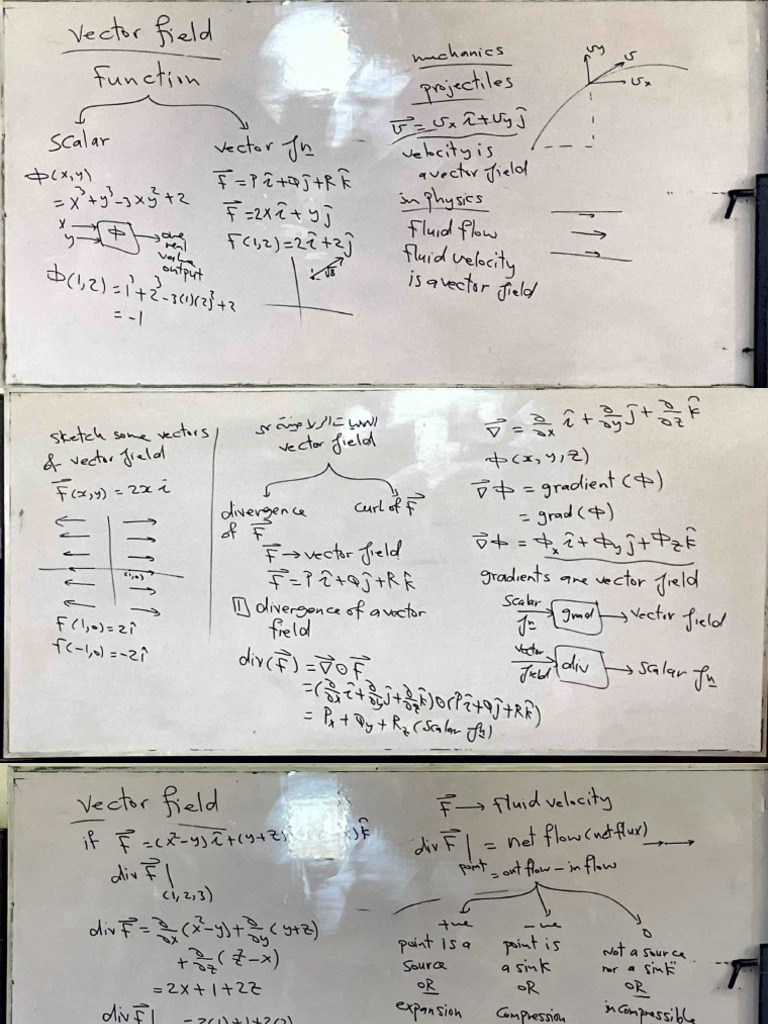 vector field
function
scalar
vector fn
Φ(x,y)
= x³+y³-3xy²+2
x
y
Φ
one
real
value
output
Φ(1,2) = 1³+2³-3(1)(2)²+2
= -1
F⃗ = Pî+Qĵ+Rk̂
F⃗ = 2xî+yĵ
F(1,2) = 2î+2ĵ
√8
mechanics
projectiles
v⃗ = vₓ î + v_y ĵ
velocity is
a vector field
in physics
fluid flow
fluid velocity
is a vector field
v_y
v
vₓ
sketch some vectors
of vector field
F⃗(x,y) = 2x î
(1,0)
F(1,0) = 2î
F(-1,0) = -2î
vector field
divergence
of F⃗
curl of F⃗
F⃗ → vector field
F⃗ = Pî+Qĵ+Rk̂
① divergence of a vector
field
div(F⃗) = ∇⃗ ⊙ F⃗
= (∂/∂x î + ∂/∂y ĵ + ∂/∂z k̂) ⊙ (Pî+Qĵ+Rk̂)
= Pₓ + Q_y + R_z (scalar fn)
∇⃗ = ∂/∂x î + ∂/∂y ĵ + ∂/∂z k̂
Φ(x,y,z)
∇⃗Φ = gradient(Φ)
= grad(Φ)
∇⃗Φ = Φₓ î + Φ_y ĵ + Φ_z k̂
gradients are vector field
scalar
fn
grad → vector field
vector
field
div → scalar fn
vector field
if F⃗ = (x²-y)î + (y+z) )k̂
div F⃗ |
(1,2,3)
div F⃗ = ∂/∂x (x²-y) + ∂/∂y (y+z)
+ ∂/∂z (z²-x)
= 2x+1+2z
div F⃗| = 2(1)+1+2(3)
F⃗ → fluid velocity
div F⃗ | = net flow (net flux)
point = out flow - in flow
+ve
point is a
source
OR
expansion
-ve
point is
a sink
OR
compression
0
not a source
nor a sink
OR
incompressible